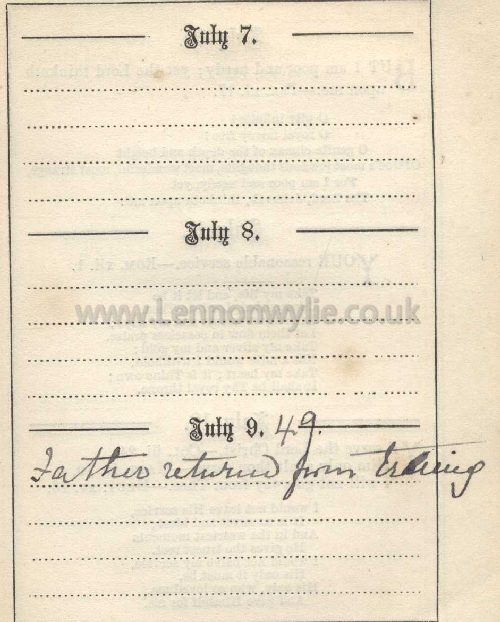 July 7.
July 8.
www.Lennonwylie.co.uk
July 9. 49.
Father returned from